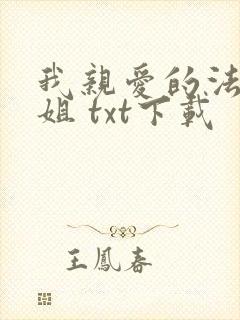 我親愛的法
姐 txt下載
王鳳春